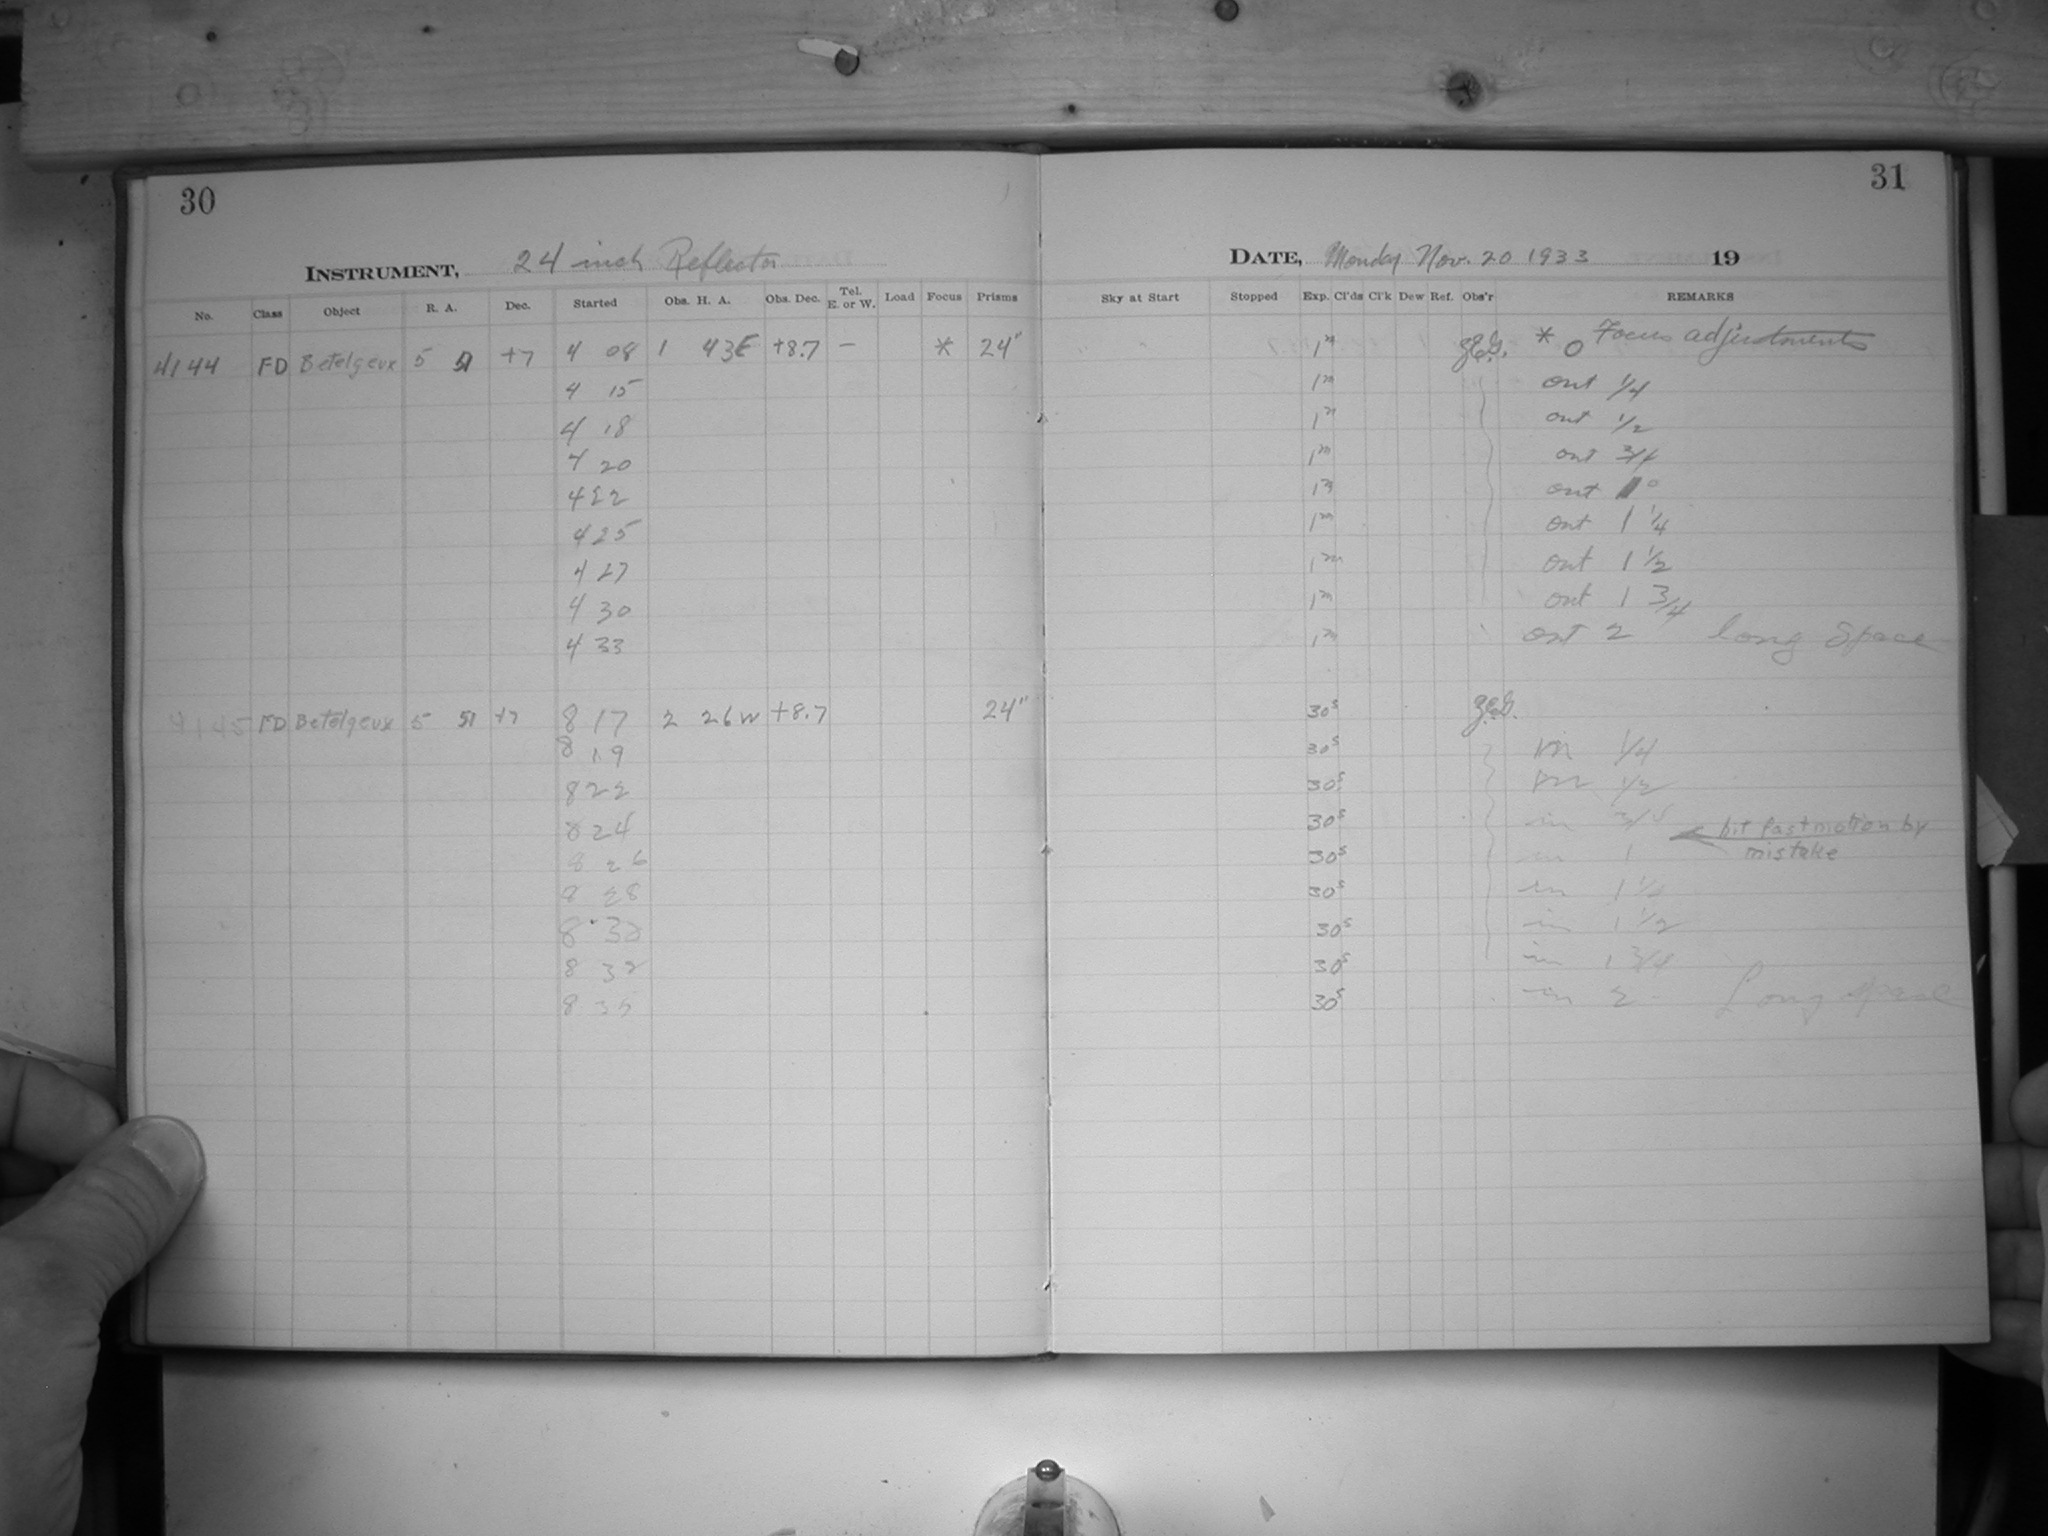 30
INSTRUMENT, 24 inch Reflector
No. Class Object R. A. Dec. Started Obs. H. A. Obs. Dec. Tel. E. or W. Load Focus Prisms
4144 FD Betelgeux 5 51 +7 4 08 1 43E +8.7 — * 24"
4 15
4 18
4 20
4 22
4 25
4 27
4 30
4 33
4145 FD Betelgeux 5 51 +7 8 17 2 26W +8.7 24"
8 19
8 22
8 24
8 26
8 28
8 30
8 32
8 35
31
DATE, Monday Nov. 20 1933 19
Sky at Start Stopped Exp. Cl'ds Cl'k Dew Ref. Obs'r REMARKS
1m * 0 Focus adjustments
1m out 1/4
1m out 1/2
1m out 3/4
1m out 1
1m out 1 1/4
1m out 1 1/2
1m out 1 3/4
1m out 2 long space
30s
30s in 1/4
30s in 1/2
30s in 3/4 hit fast motion by
30s in 1 mistake
30s in 1 1/4
30s in 1 1/2
30s in 1 3/4
30s in 2 Long space